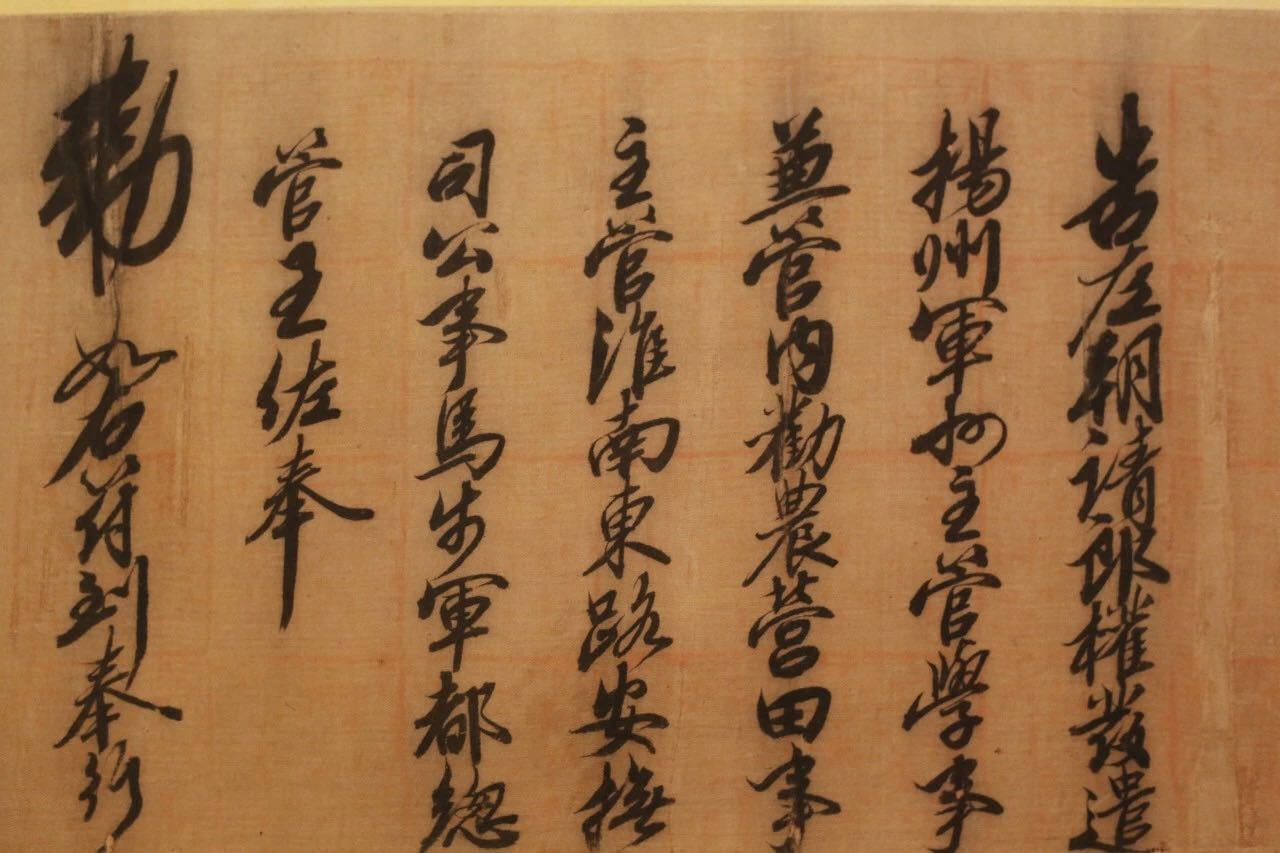 告左朝請郎權發遣
揚州軍州主管學事
兼管內勸農營田事
主管淮南東路安撫
司公事馬步軍都總
管王佐奉
勅如右符到奉行